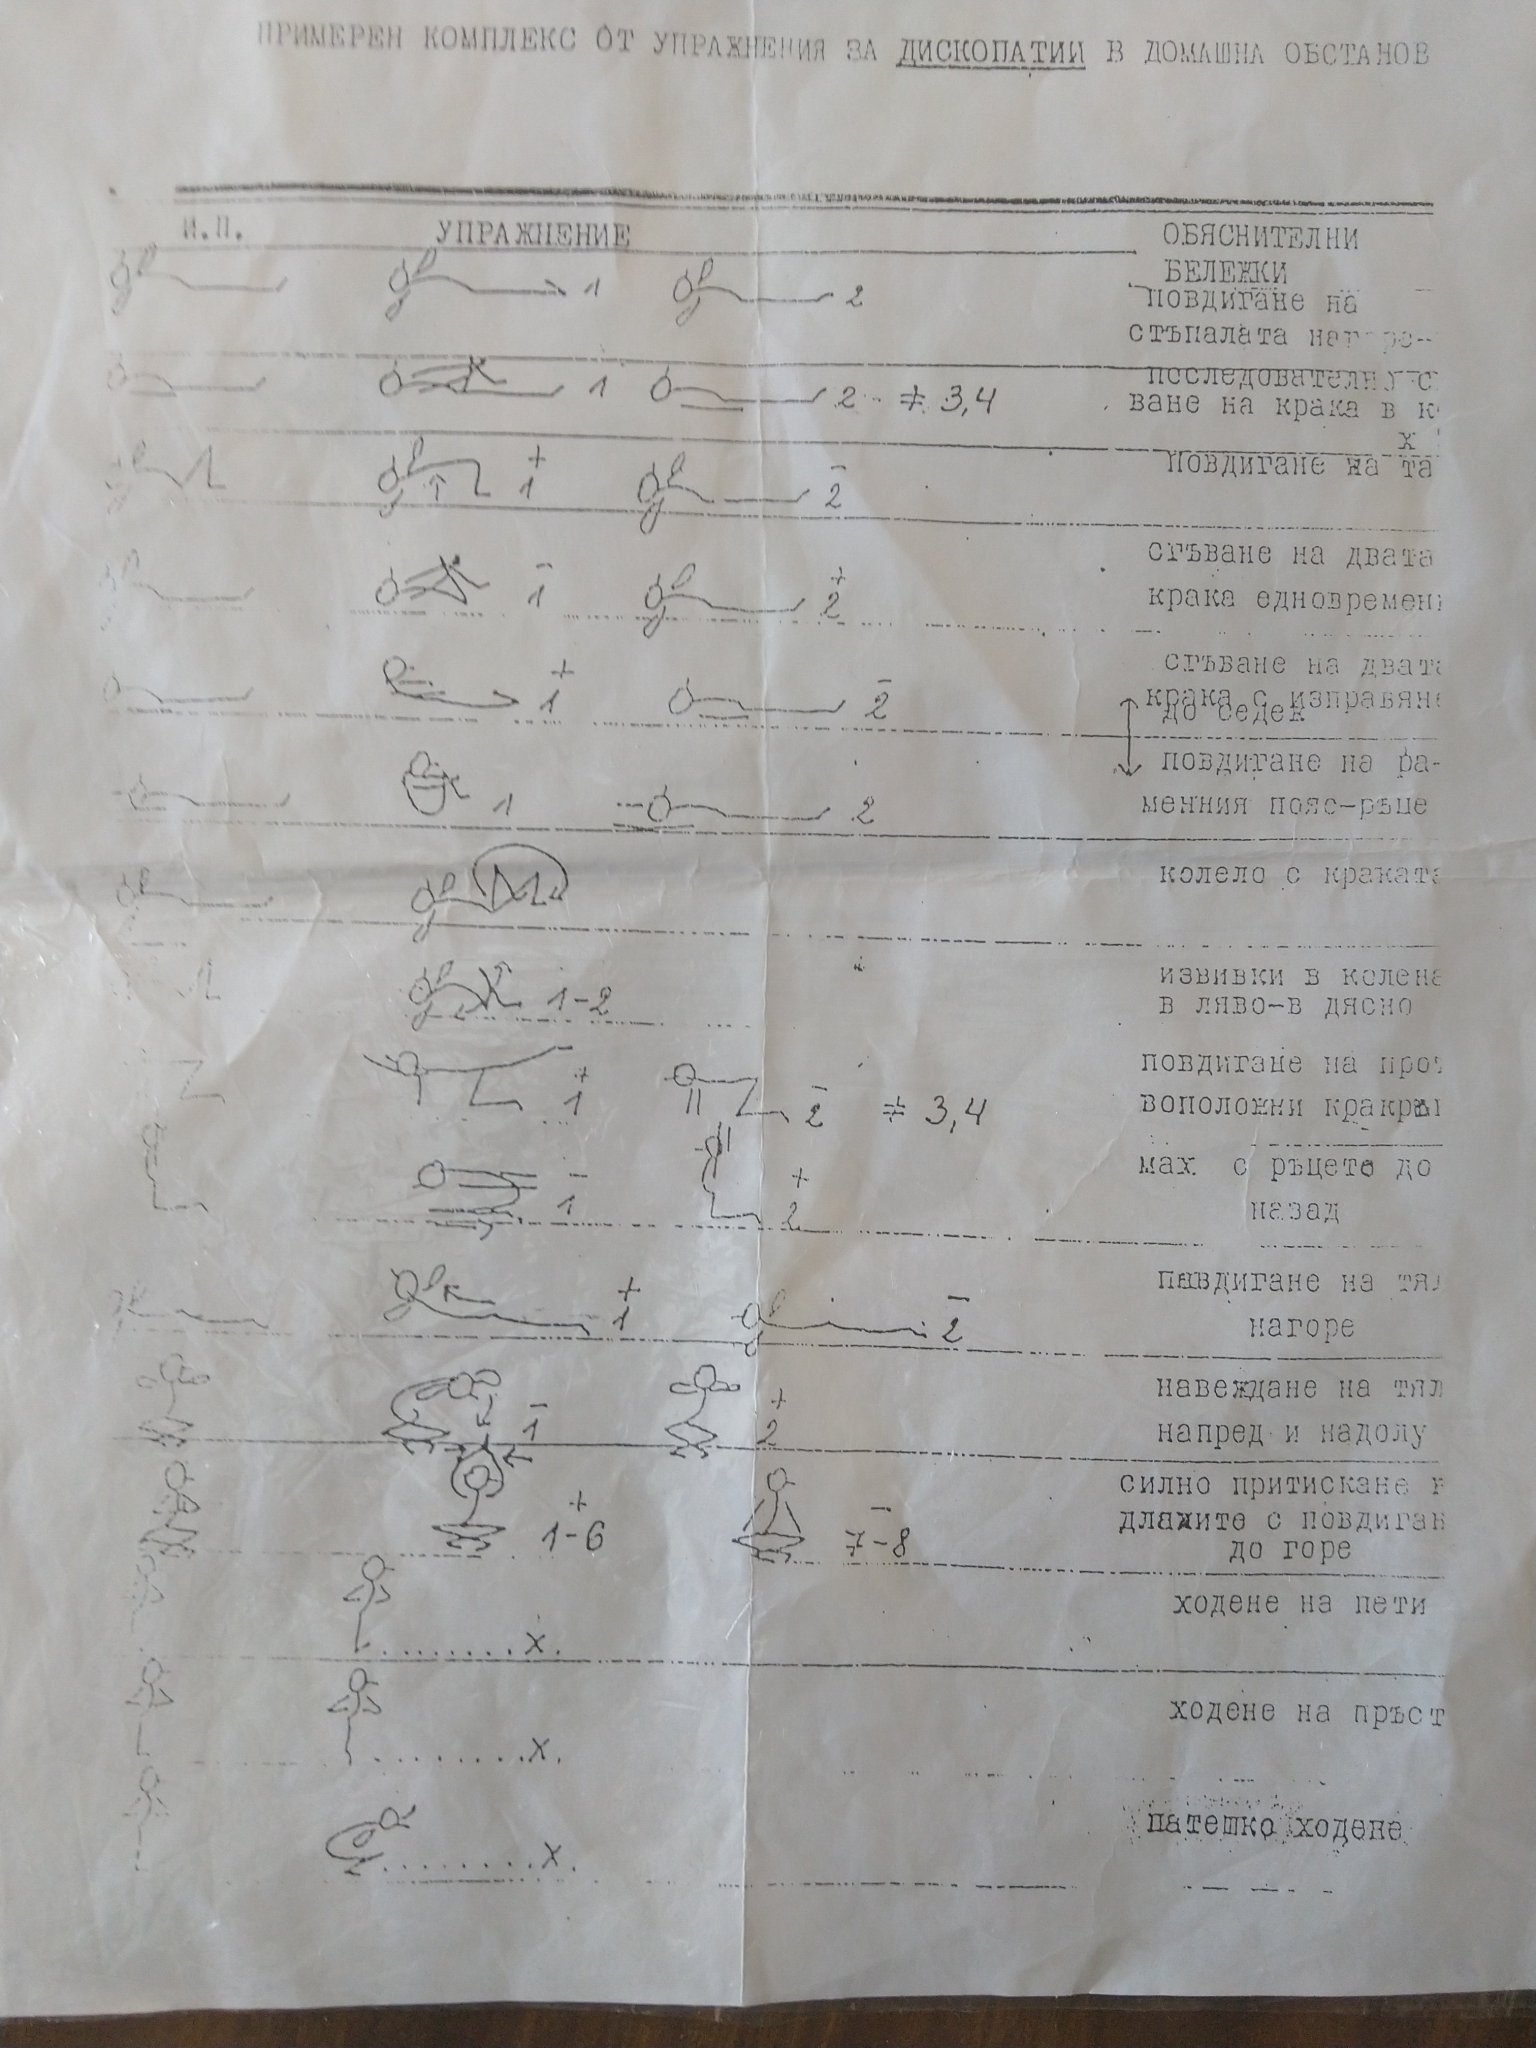 ПРИМЕРЕН КОМПЛЕКС ОТ УПРАЖНЕНИЯ ЗА ДИСКОПАТИИ В ДОМАШНА ОБСТАНОВ
И.П. УПРАЖНЕНИЕ ОБЯСНИТЕЛНИ
БЕЛЕЖКИ
1 2 повдигане на
стъпалата
1 2 ≠ 3,4
ване на крака в к
х
+ 1 - 2 повдигане на та
сгъване на двата
- 1 + 2 крака едновремен
сгъване на двата
+ 1 - 2 крака с изправяне
до седеж
повдигане на ра-
1 2 менния пояс-ръце
колело с краката
извивки в колена
1-2 в ляво-в дясно
повдигане на про
+ 1 - 2 ≠ 3,4 воположни
мах с ръцете до
- 1 + 2 назад
повдигане на тял
+ 1 - 2 нагоре
навеждане на тял
- 1 + 2 напред и надолу
силно притискане
+ 1-6 - 7-8 дланите с повдиган
до горе
ходене на пети
........х.
ходене на пръст
.........х.
патешко ходене
.........х.